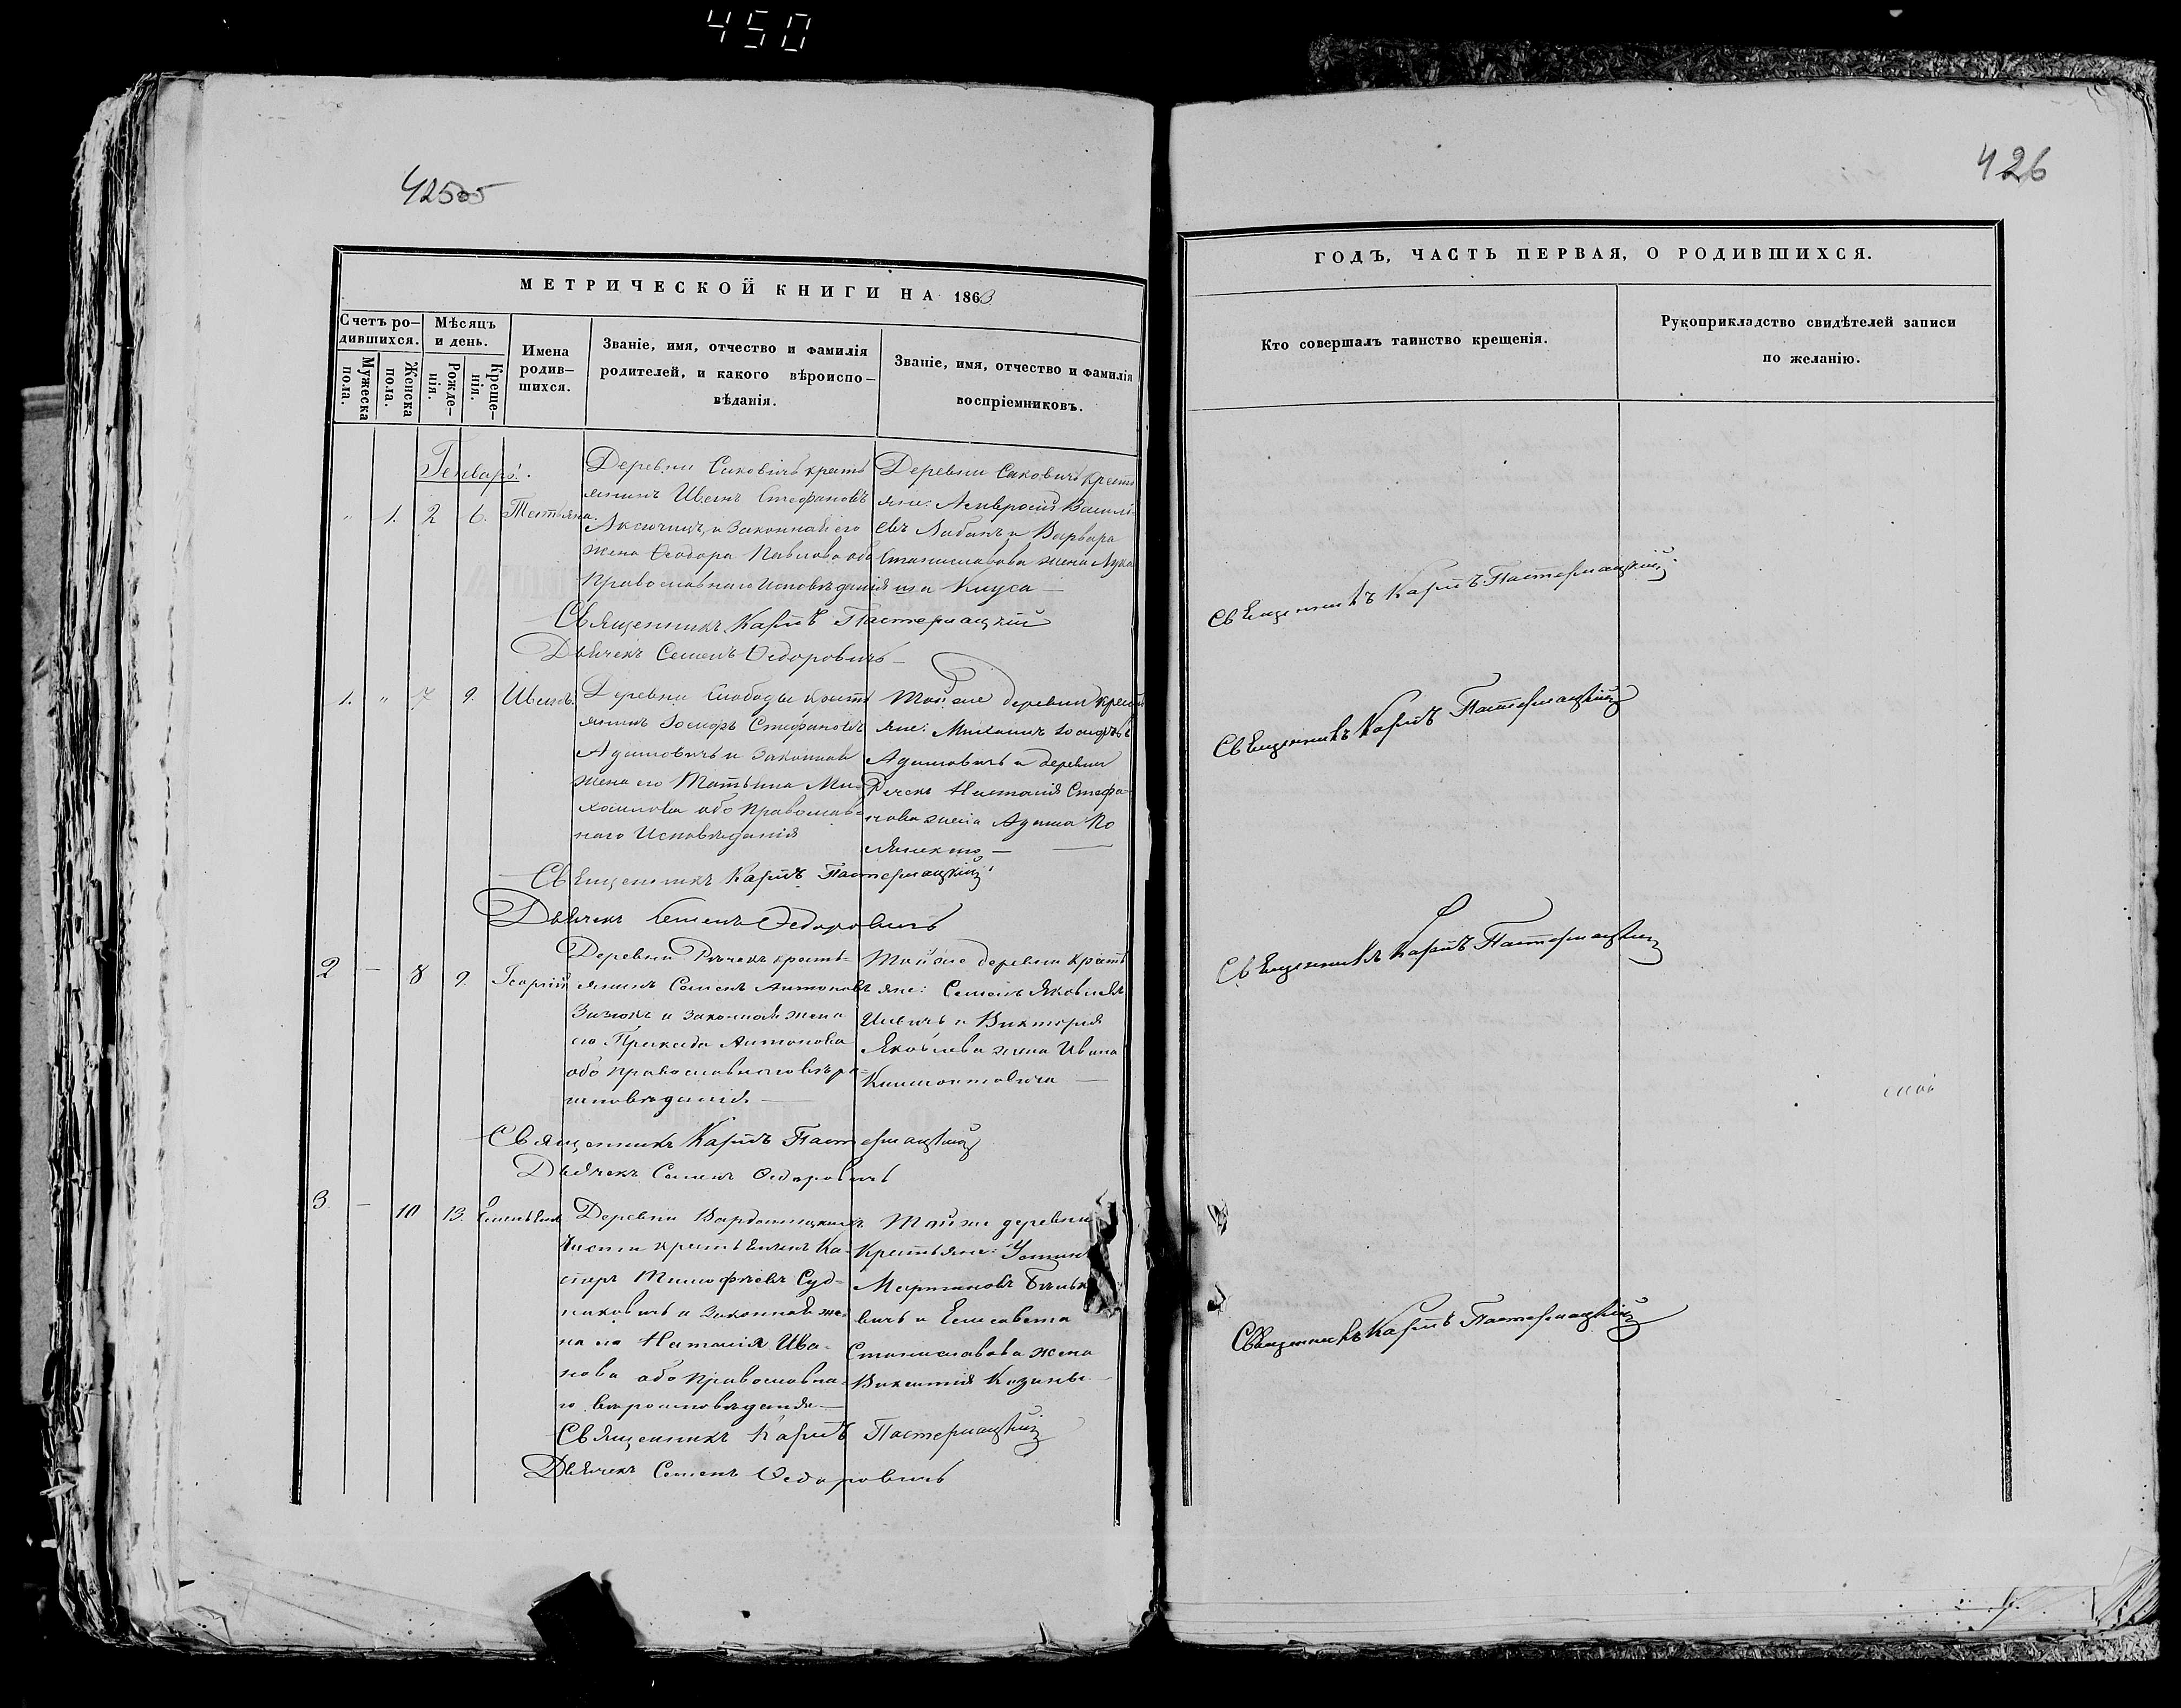 450
425
426
МЕТРИЧЕСКОЙ КНИГИ НА 1863
ГОДЪ, ЧАСТЬ ПЕРВАЯ, О РОДИВШИХСЯ.
Счетъ ро-
дившихся.
Мужеска
пола.
Женска
пола.
Мѣсяцъ
и день.
Рожде-
нія.
Креще-
нія.
Имена
родив-
шихся.
Званіе, имя, отчество и фамилія
родителей, и какого вѣроиспо-
вѣданія.
Званіе, имя, отчество и фамилія
воспріемниковъ.
Кто совершалъ таинство крещенія.
Рукоприкладство свидѣтелей записи
по желанію.
Генварь.
" 1. 2 6. Татьяна.
Деревни Саковичъ крестъ
янинъ Иванъ Стефановъ
и законная его
жена Ѳеодора Павлова оба
Православнаго Исповѣданія
Деревни Саковичъ крестъ
яне: Амвросій Василі
евъ Лабанъ и Варвара
Станиславова жена Лука
ша Кнуса
Священникъ Карпъ Пастернацкій
Дьячекъ Семенъ Ѳедоровичъ
Священникъ Карпъ Пастернацкій
1. " 7 9. Иванъ.
Деревни Слободы крестъ
янинъ Іосифъ Стефановъ
Адамовичъ и законная
жена его Татьяна Ми-
хаилова оба Православ-
наго Исповѣданія
Той же деревни крестъ
яне: Михаилъ Іосифовъ
Адамовичъ и деревни
Рѣчекъ Наталія Стефа-
нова жена Адама
Священникъ Карпъ Пастернацкій
Дьячекъ Семенъ Ѳедоровичъ
Священникъ Карпъ Пастернацкій
2 — 8 9. Георгій
Деревни Рѣчекъ кресть-
янинъ Семенъ Антоновъ
Зизюкъ и законная жена
его Праксида Антонова
оба православнаго вѣро-
исповѣданія
Той же деревни Кресть
яне: Семенъ Яковлевъ
и Викторія
Яковлева жена Ивана
Климонтовича
Священникъ Карпъ Пастернацкій
Дьячекъ Семенъ Ѳедоровичъ
Священникъ Карпъ Пастернацкій
3 — 10 13. Емельянъ
Деревни
части крестьянинъ Ка-
сперъ Тимофѣевъ Суд-
никовичъ и законная же-
на его Наталія Ива-
нова оба православна-
го вѣроисповѣданія
Той же деревни
Крестьяне: Устинъ
Мартиновъ
вичъ и Елисавета
Станиславова жена
Викентія Козины
Священникъ Карпъ Пастернацкій
Дьячекъ Семенъ Ѳедоровичъ
Священникъ Карпъ Пастернацкій